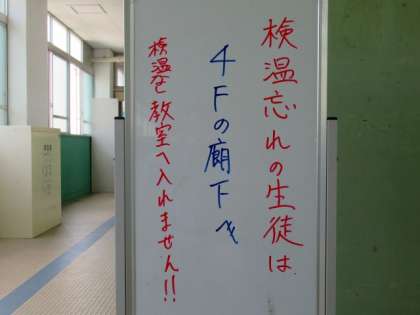 検温忘れの生徒は
4Fの廊下へ
検温なく教室へ入れません!!